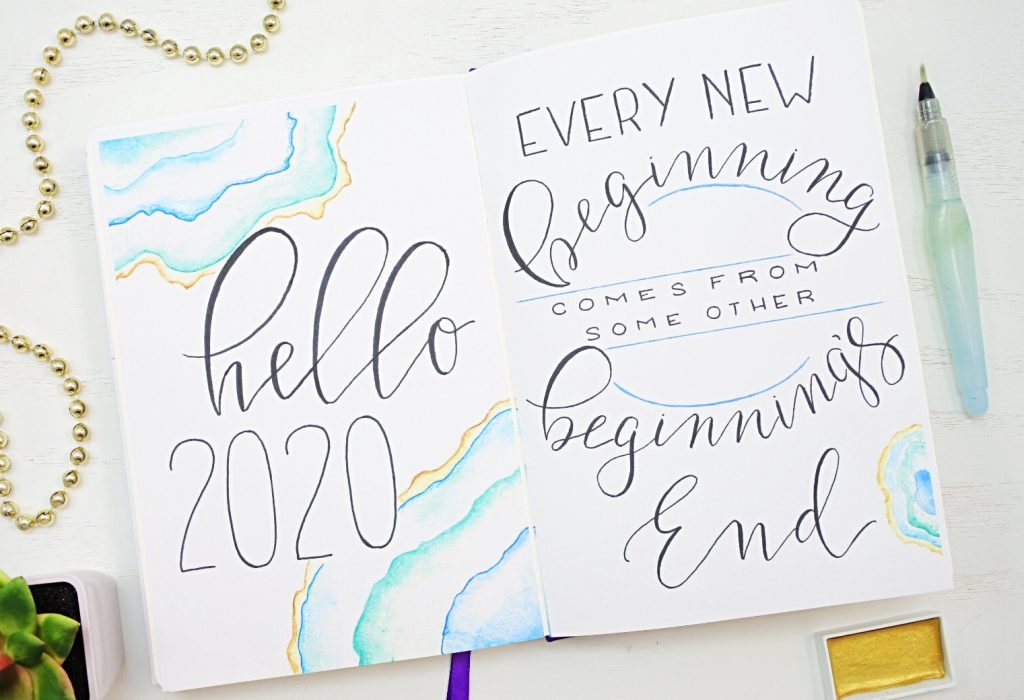 hello
2020
EVERY NEW
beginning
COMES FROM
SOME OTHER
beginning's
End